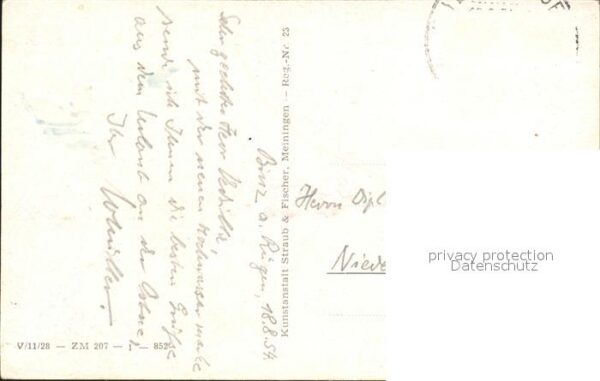 Binz a. Rügen, 18.8.54
Sehr geehrter Herr
mit der neuen Hochwassermarke
sende ich Ihnen die besten Grüße
aus dem Urlaub an der Ostsee,
Ihr
Kunstanstalt Straub & Fischer, Meiningen — Reg.-Nr. 23
Herrn Dipl
Niede
V/11/28 — ZM 207 — I — 852
privacy protection
Datenschutz